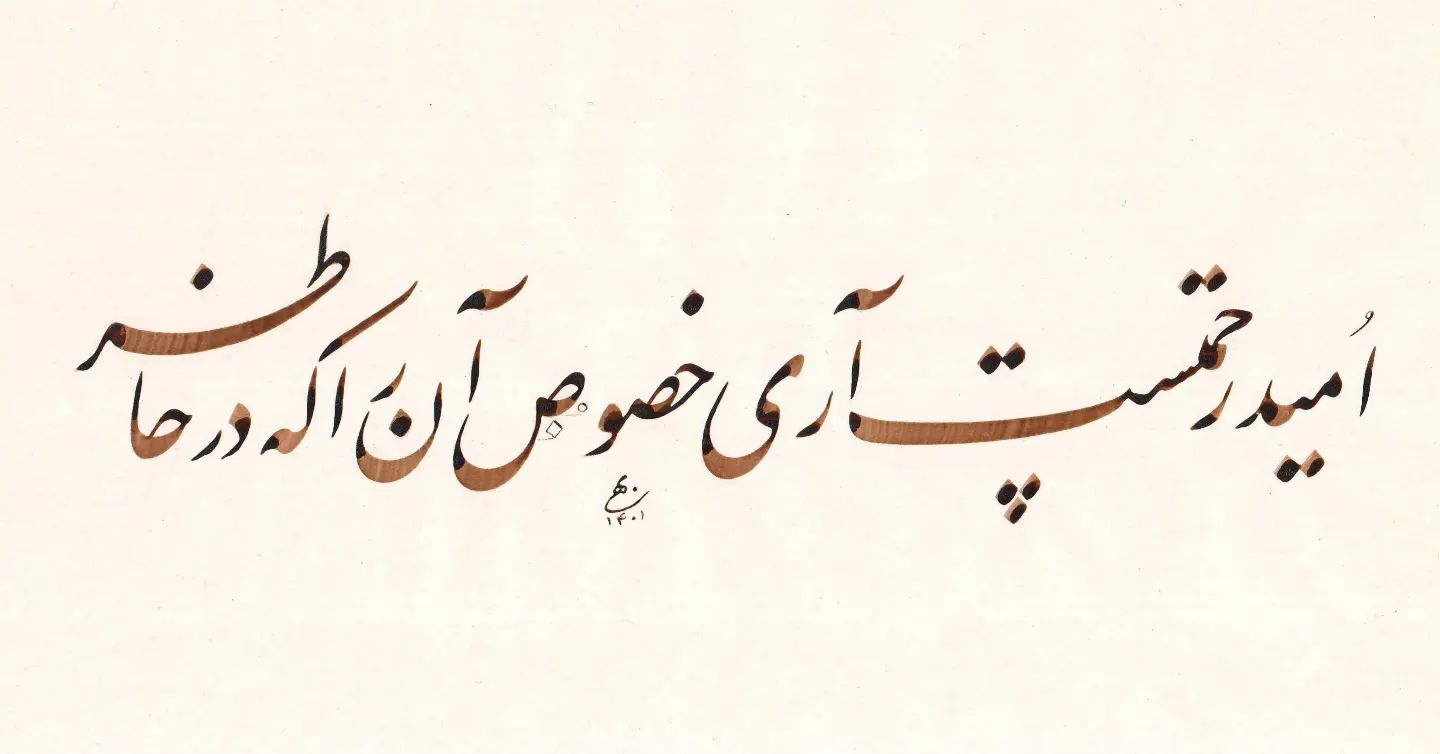 اُمید رحمتست آری خصوص آن را که در خاطر
۱۴۰۱